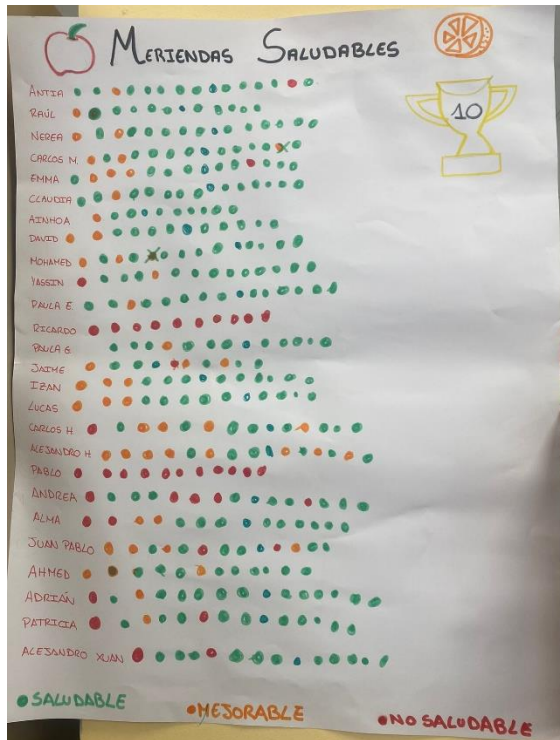 MERIENDAS SALUDABLES
10
ANTIA
RAÚL
NEREA
CARLOS M.
EMMA
CLAUDIA
AINHOA
DAVID
MOHAMED
YASSIN
PAULA E.
RICARDO
PAULA G
JAIME
IZAN
LUCAS
CARLOS H
ALEJANDRO H
PABLO
ANDREA
ALMA
JUAN PABLO
AHMED
ADRIÁN
PATRICIA
ALEJANDRO XUAN
SALUDABLE
MEJORABLE
NO SALUDABLE